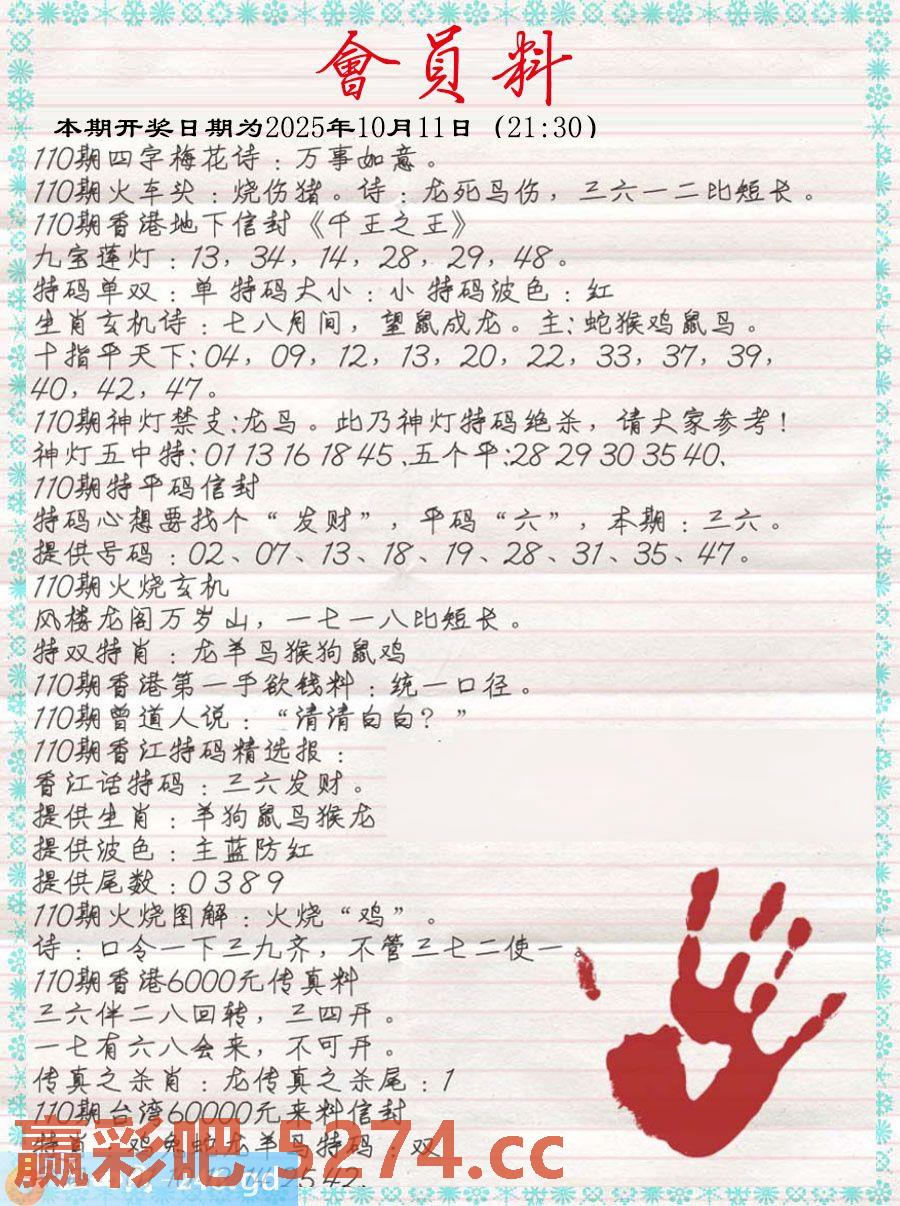 會員料
本期开奖日期为2025年10月11日（21:30）
110期四字梅花诗：万事如意。
110期火车头：烧伤猪。诗：龙死鸟伤，三六一二比短长。
110期香港地下信封《千王之王》
九宝莲灯：13，34，14，28，29，48。
特码单双：单 特码大小：小 特码波色：红
生肖玄机诗：七八月间，望鼠成龙。主：蛇猴鸡鼠马。
十指平天下：04，09，12，13，20，22，33，37，39，
40，42，47。
110期神灯禁支：龙马。此乃神灯特码绝杀，请大家参考！
神灯五中特：01 13 16 18 45、五个平：28 29 30 35 40、
110期特平码信封
特码心想要找个“发财”，平码“六”，本期：三六。
提供号码：02、07、13、18、19、28、31、35、47。
110期火烧玄机
风楼龙阁万岁山，一七一八比短长。
特双特肖：龙羊马猴狗鼠鸡
110期香港第一手欲钱料：统一口径。
110期曾道人说：“清清白白？”
110期香江特码精选报：
香江话特码：三六发财。
提供生肖：羊狗鼠马猴龙
提供波色：主蓝防红
提供尾数：0 3 8 9
110期火烧图解：火烧“鸡”。
诗：口令一下三九齐，不管三七二使一。
110期香港6000元传真料
三六伴二八回转，三四开。
一七有六八会来，不可开。
传真之杀肖：龙传真之杀尾：1
110期台湾60000元来料信封
特肖：鸡兔蛇龙羊马特码：双
赢彩吧.5274.cc
25 42、